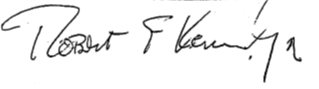 Robert F Kennedy Jr